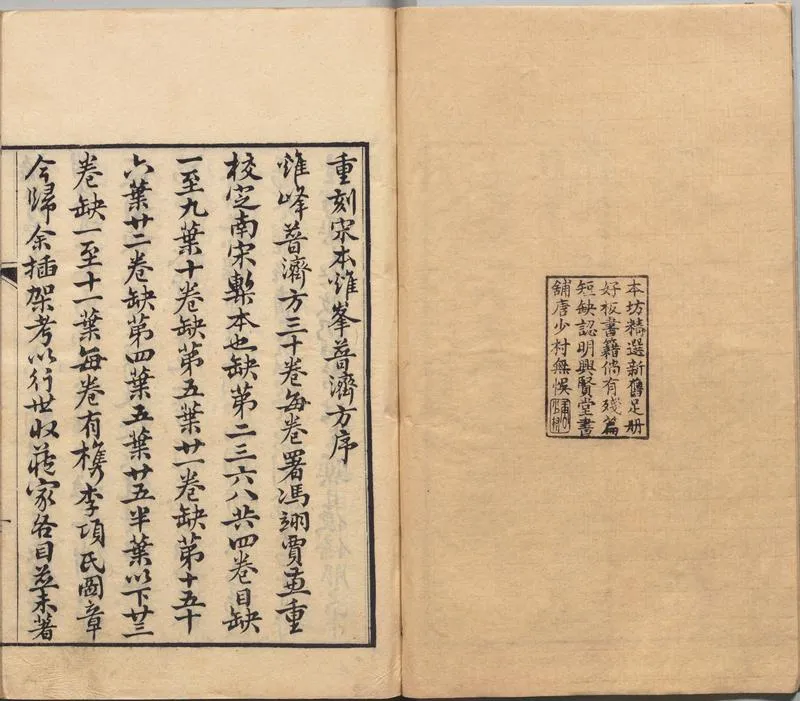 本坊精選新舊足册
好板書籍倘有殘篇
短缺認明興賢堂書
舖唐少村無悞
重刻宋本雞峯普濟方序
雞峰普濟方三十卷每卷署馮翊賈兼重
校定南宋槧本也缺第二三六八共四卷目缺
一至九葉十卷缺第五葉廿一卷缺第十五十
六葉廿二卷缺第四葉五葉廿五半葉以下廿三
卷缺一至十一葉每卷有檇李項氏圖章
今歸余插架考以行世收藏家各目並未著